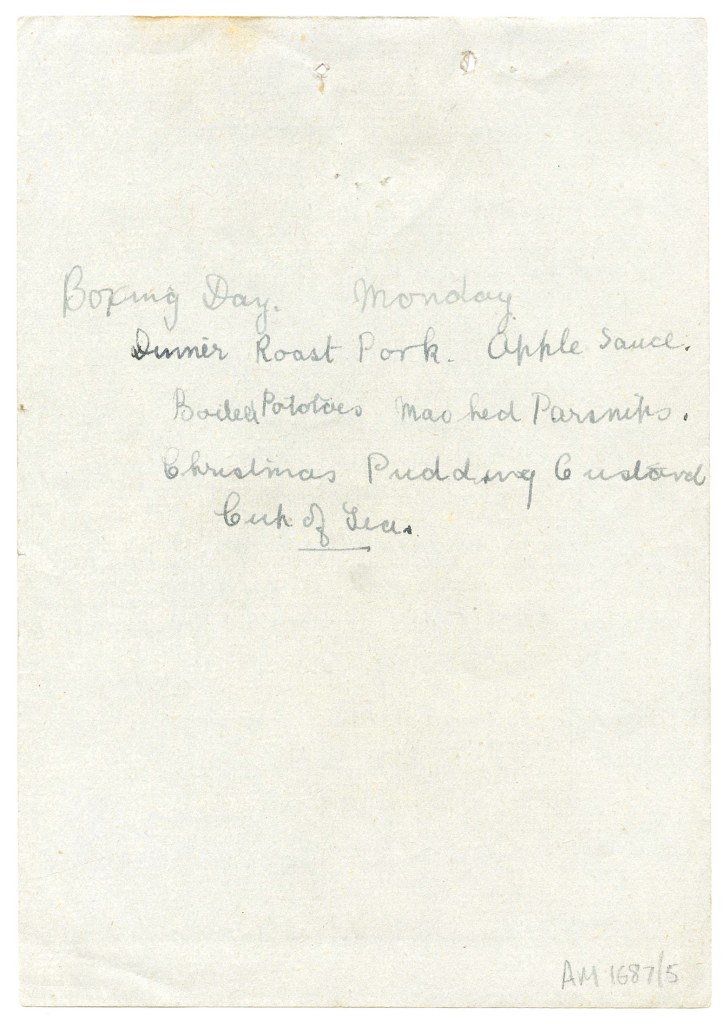 Boxing Day. Monday
Dinner Roast Pork. Apple Sauce.
Boiled Potatoes Mashed Parsnips.
Christmas Pudding Custard
Cup of Tea.
AM 1687/5